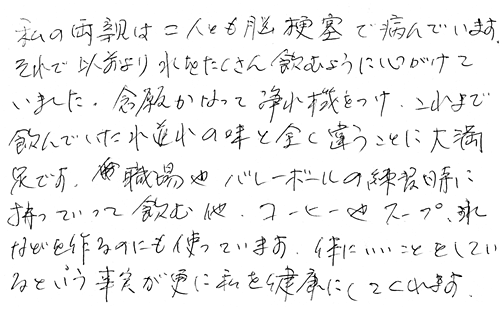 私の両親は二人とも脳梗塞で病んでいます。
それで以前より水をたくさん飲むように心がけて
いました。念願かなって浄水機をつけ、これまで
飲んでいた水道水の味と全く違うことに大満
足です。職場やバレーボールの練習時に
持っていって飲む他、コーヒーやスープ、氷
などを作るのにも使っています。体にいいことをしてい
るという事実が更に私を健康にしてくれます。